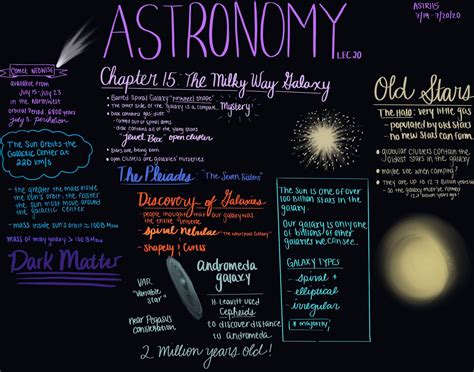 ASTRONOMY
LEC 20
ASTR115
7/19 - 7/20/20
Comet NEOWISE
available from
July 15 - July 23
in the Northwest
orbital Period: 6800 years
July 3: perihelion
The Sun orbits the
Galactic Center at
220 km/s
- the greater the mass inside
the sun's orbit, the faster
the sun must move around
the galactic center
- mass inside sun's orbit: 100 B Msun
mass of milky galaxy > 100 B Msun
Dark Matter
Chapter 15: The Milky Way Galaxy
Barred Spiral Galaxy: "pinwheel shape"
the other side of the galaxy is a complete Mystery
Disk contains gas + dust
- formed out of spiral arms
- disk contains all of the young stars
"Jewel Box" open cluster
Stars are being born
open clusters are galaxies' nurseries
The Pleiades: "The Seven Sisters"
Discovery of Galaxies
- people thought that our galaxy was
the entire universe
- spiral nebulae
"The Whirlpool Galaxy"
- Shapely | Curtis
VAR
"Variable
star"
near Pegasus
constellation
Andromeda
galaxy
H. Leavitt used
Cepheids
to discover distance
to Andromeda
2 Million years old!
The Sun is one of over
100 billion stars in the
galaxy
Our galaxy is only one
of billions of other
galaxies we can see
GALAXY TYPES
- spiral *
- elliptical
- irregular
* majority
Old Stars
The Halo: very little gas
- populated by old stars
- no new stars can form
globular clusters contain the
oldest stars in the galaxy
maybe use when camping?
They are up to 12.7 billion years old
- so the galaxy must've formed
12.7 billion years ago